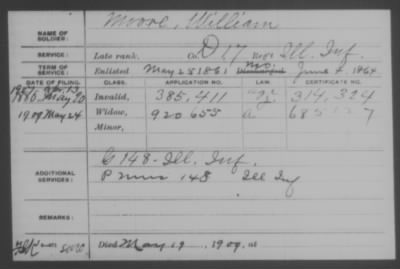 Moore, William
NAME OF SOLDIER:
SERVICE: Late rank, Co. D 17 Reg't Ill. Inf.
TERM OF SERVICE: Enlisted May 25 1861 June 4, 1864
DATE OF FILING. CLASS. APPLICATION NO. LAW. CERTIFICATE NO.
1880 May 20 Invalid, 385,411 314,324
1909 May 24 Widow, 920655 a
Minor,
ADDITIONAL SERVICES: G 148 - Ill. Inf.
148 Ill Inf
REMARKS:
Died May 19, 1909, at